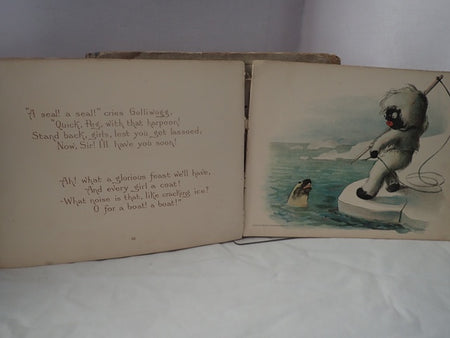 "A seal! a seal!" cries Golliwogg,
"Quick, Peg, with that harpoon!
Stand back, girls, lest you get lassoed,
Now, Sir! I'll have you soon!
Ah! what a glorious feast we'll have,
And every girl a coat!
-What noise is that, like cracking ice?
O for a boat! a boat!"